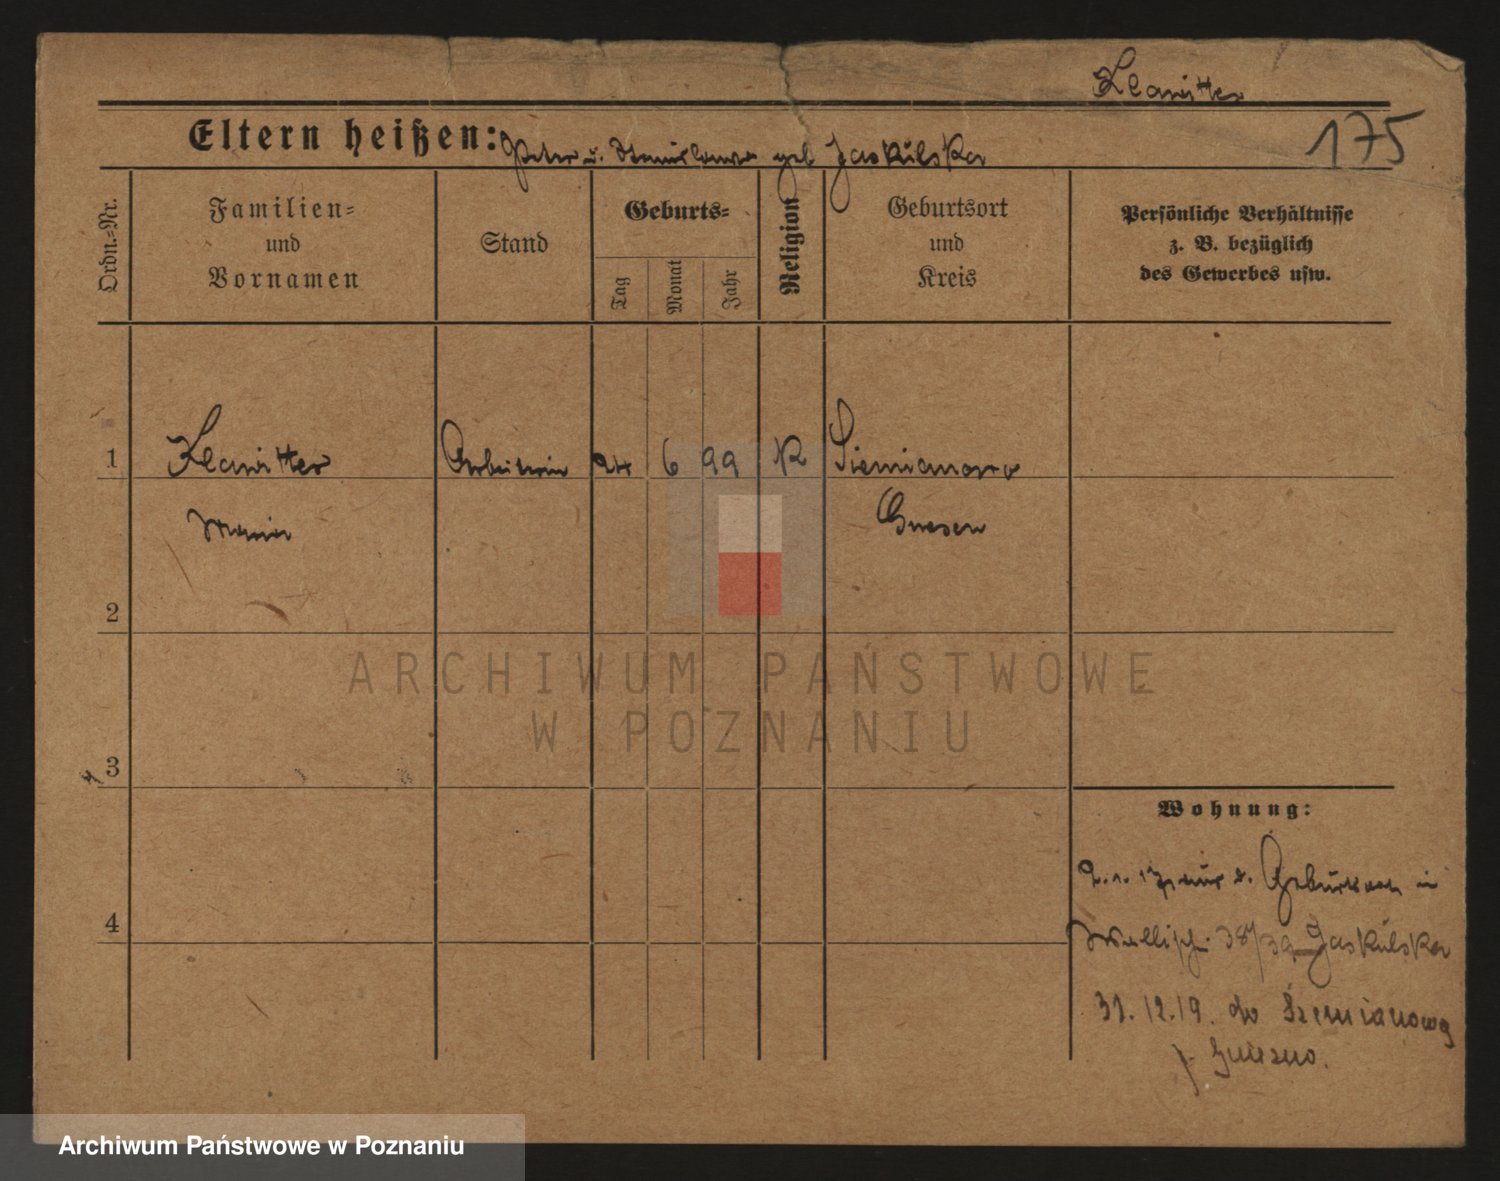 Klawitter
175
Eltern heißen: Peter u. Stanislawa geb Jaskulska
Ordn.-Nr.
Familien-
und
Vornamen
Stand
Geburts-
Tag
Monat
Jahr
Religion
Geburtsort
und
Kreis
Persönliche Verhältnisse
z. B. bezüglich
des Gewerbes usw.
1
Klawitter
Arbeiterin
24
6
99
K
Siemianowo
Maria
Gnesen
2
3
4
Wohnung:
Wallisch. 38/39 Jaskulska
31.12.19. do Siemianowa
p. Gniezno.
ARCHIWUM PAŃSTWOWE
W POZNANIU
Archiwum Państwowe w Poznaniu